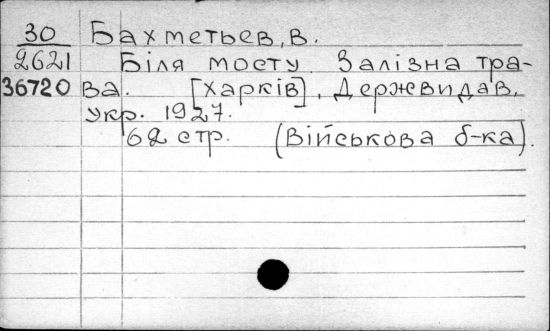 30 Бахметьев, В.
2621 Біля мосту. Залізна тра-
36720 ва. [Харків], Держвидав.
Укр. 1927.
62 стр. (Військова б-ка).